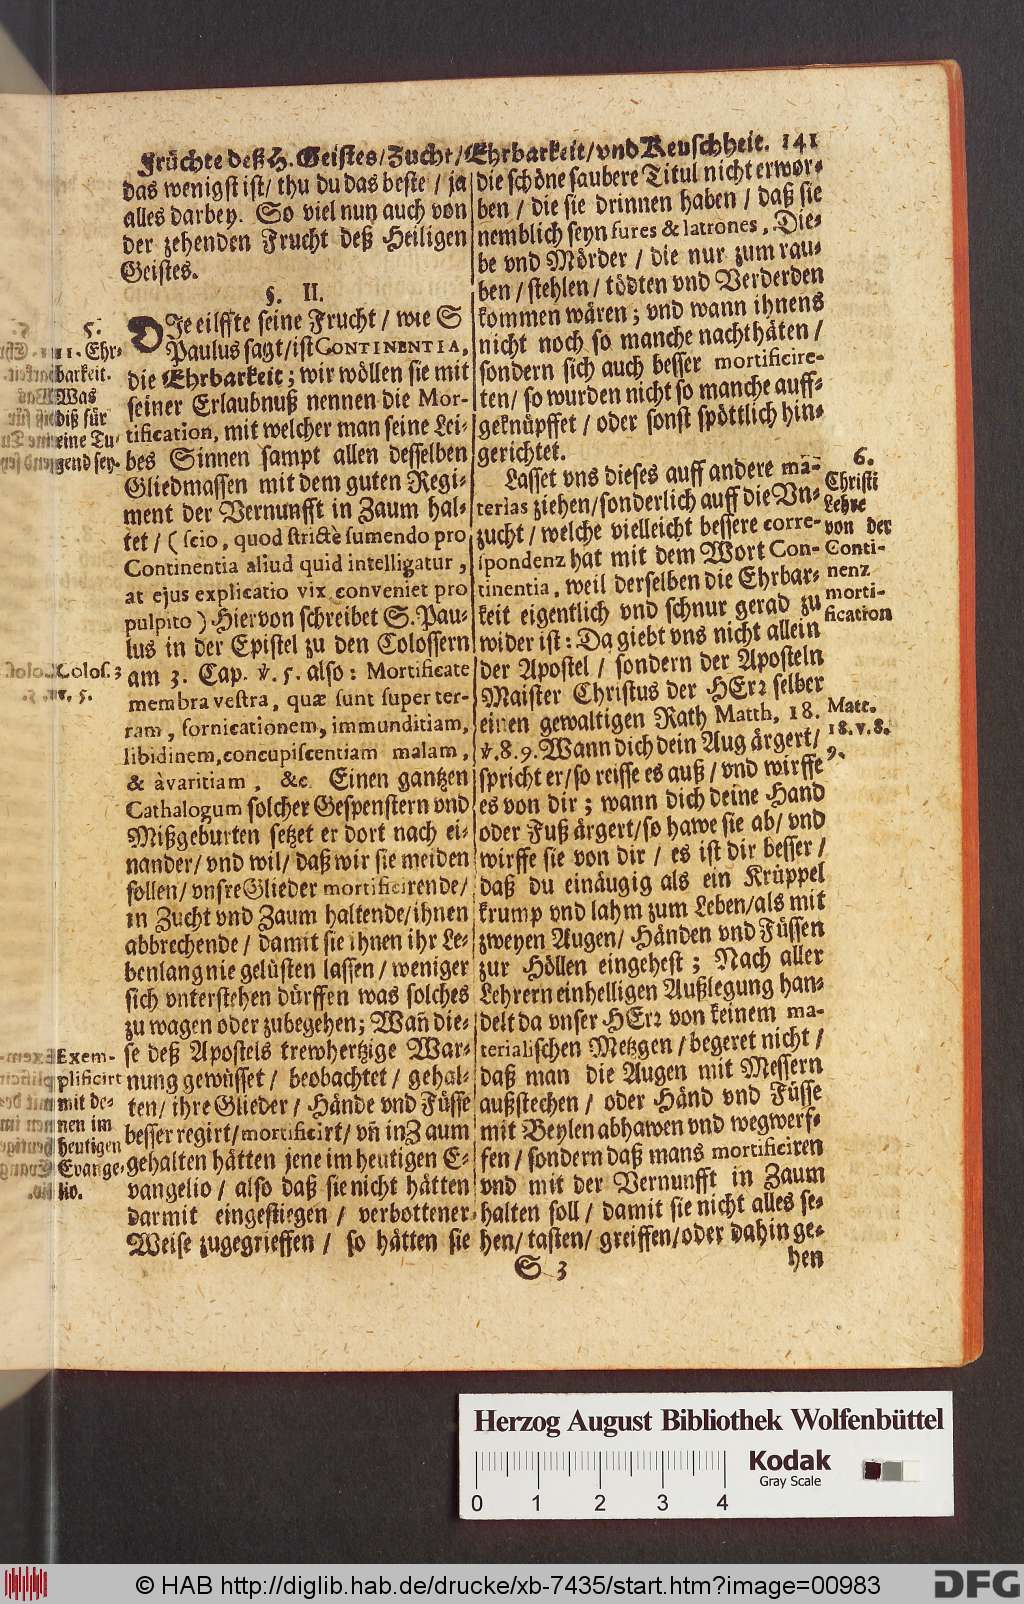 Früchte deß H. Geistes/Zucht/Ehrbarkeit/vnd Keuschheit. 141
das wenigst ist/ thu du das beste / ja
alles darbey. So viel nun auch von
der zehenden Frucht deß Heiligen
Geistes.
§. II.
DJe eilffte seine Frucht / wie S
Paulus sagt/ist CONTINENTIA,
die Ehrbarkeit; wir wöllen sie mit
seiner Erlaubnuß nennen die Mor-
tification, mit welcher man seine Lei-
bes Sinnen sampt allen desselben
Gliedmassen mit dem guten Regi-
ment der Vernunfft in Zaum hal-
tet / (scio, quod strictè sumendo pro
Continentia aliud quid intelligatur,
at ejus explicatio vix conveniet pro
pulpito) Hiervon schreibet S. Pau-
lus in der Epistel zu den Colossern
am 3. Cap. ℣. 5. also: Mortificate
membra vestra, quæ sunt super ter-
ram, fornicationem, immunditiam,
libidinem, concupiscentiam malam,
& àvaritiam, &c. Einen gantzen
Cathalogum solcher Gespenstern vnd
Mißgeburten setzet er dort nach ei-
nander/ vnd wil/ daß wir sie meiden
sollen/ vnsre Glieder mortificirende/
in Zucht vnd Zaum haltende/ihnen
abbrechende / damit sie ihnen ihr Le-
benlang nie gelüsten lassen / weniger
sich vnterstehen dürffen was solches
zu wagen oder zubegehen; Wañ die-
se deß Apostels trewhertzige War-
nung gewüsset / beobachtet / gehal-
ten/ ihre Glieder / Hände vnd Füsse
besser regirt/mortificirt/ vñ in Zaum
gehalten hätten jene im heutigen E-
vangelio / also daß sie nicht hätten
darmit eingestiegen / verbottener
Weise zugegrieffen / so hätten sie
5.
11. Ehr-
barkeit.
Was
diß für
eine Tu-
gend sey.
Colos. 3
v. 5.
Exem-
plificirt
mit de-
nen im
heutigen
Evange-
lio.
die schöne saubere Titul nicht erwor-
ben / die sie drinnen haben / daß sie
nemblich seyn fures & latrones, Die-
be vnd Mörder / die nur zum rau-
ben / stehlen / tödten vnd Verderden
kommen wären; vnd wann ihnens
nicht noch so manche nachthäten /
sondern sich auch besser mortificire-
ten/ so wurden nicht so manche auff-
geknüpffet / oder sonst spöttlich hin-
gerichtet.
Lasset vns dieses auff andere ma-
terias ziehen/sonderlich auff die Vn-
zucht / welche vielleicht bessere corre-
spondenz hat mit dem Wort Con-
tinentia, weil derselben die Ehrbar-
keit eigentlich vnd schnur gerad zu
wider ist: Da giebt vns nicht allein
der Apostel / sondern der Aposteln
Maister Christus der HErꝛ selber
einen gewaltigen Rath Matth, 18.
℣. 8. 9. Wann dich dein Aug ärgert/
spricht er/so reisse es auß / vnd wirffe
es von dir; wann dich deine Hand
oder Fuß ärgert/so hawe sie ab/ vnd
wirffe sie von dir / es ist dir besser /
daß du einäugig als ein Krüppel
krump vnd lahm zum Leben/als mit
zweyen Augen/ Händen vnd Füssen
zur Höllen eingehest; Nach aller
Lehrern einhelligen Außlegung han-
delt da vnser HErꝛ von keinem ma-
terialischen Metzgen / begeret nicht /
daß man die Augen mit Messern
außstechen / oder Händ vnd Füsse
mit Beylen abhawen vnd wegwerf-
fen / sondern daß mans mortificiren
vnd mit der Vernunfft in Zaum
halten soll / damit sie nicht alles se-
hen/ tasten/ greiffen/oder dahin ge-
hen
S 3
6.
Christi
Lehre
von der
Conti-
nenz
morti-
fication
Matt.
18. v. 8.
9.
Herzog August Bibliothek Wolfenbüttel
Kodak
Gray Scale
0 1 2 3 4
© HAB http://diglib.hab.de/drucke/xb-7435/start.htm?image=00983
DFG